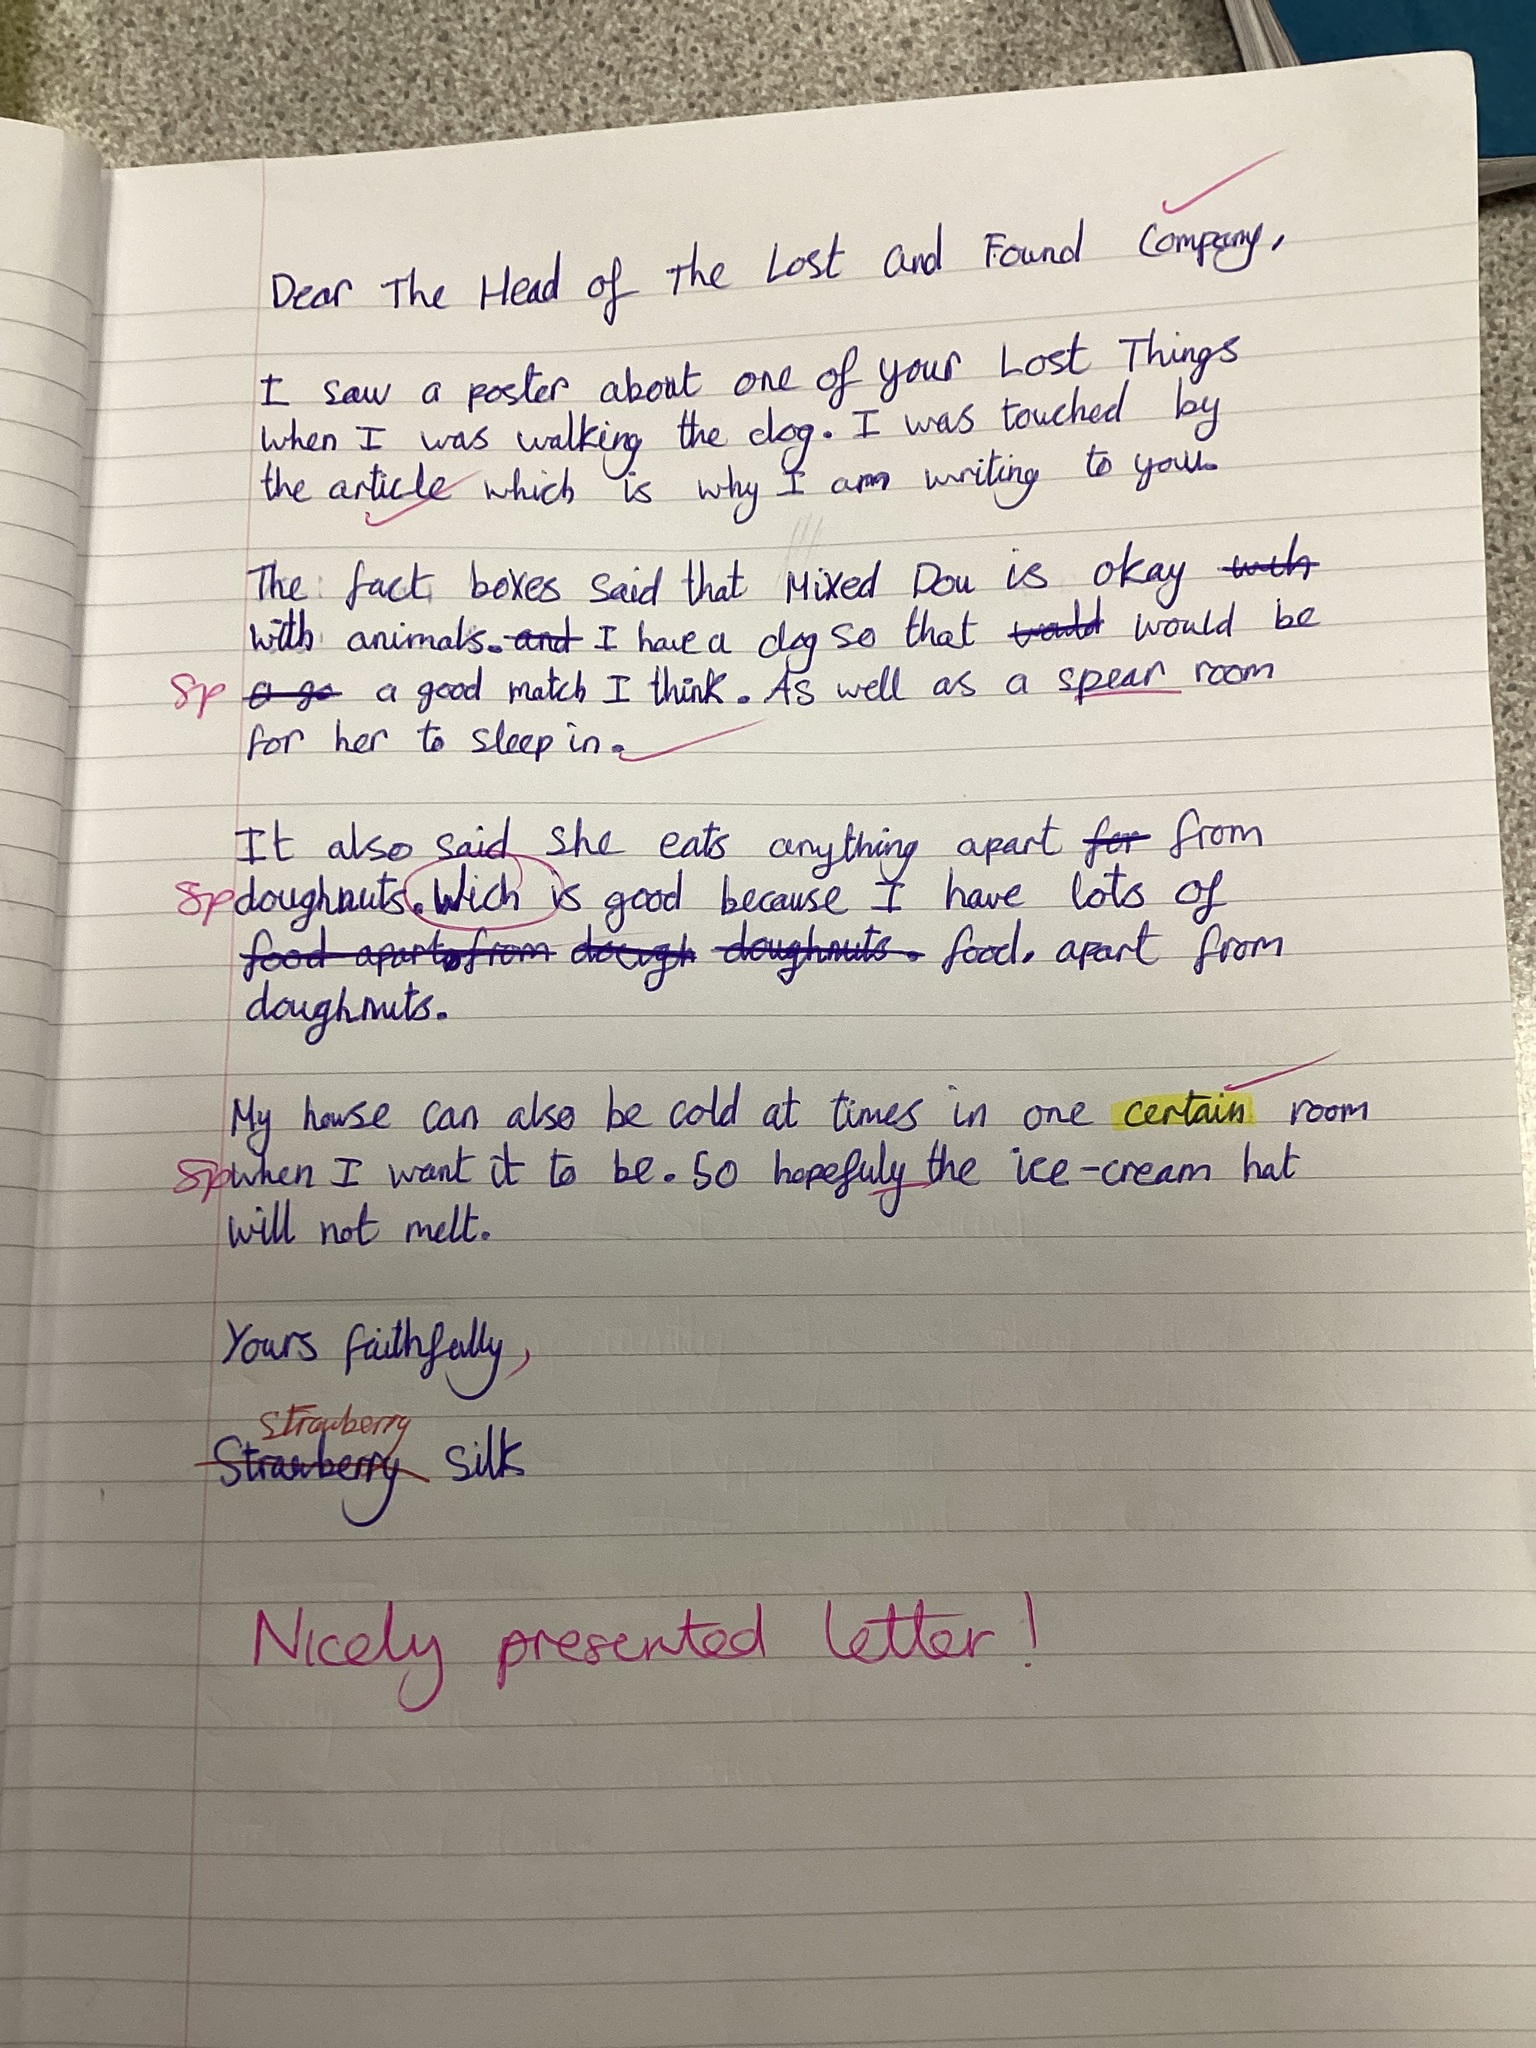 Dear The Head of The Lost and Found Company,
I saw a poster about one of your Lost Things
when I was walking the dog. I was touched by
the article which is why I am writing to you.
The fact boxes said that Mixed Dou is okay with
with animals. and I have a dog so that would would be
Sp a go a good match I think. As well as a spear room
for her to sleep in.
It also said she eats anything apart for from
Sp doughnuts. Wich is good because I have lots of
food apart from dough doughnuts. food. apart from
doughnuts.
My house can also be cold at times in one certain room
Sp when I want it to be. So hopefuly the ice-cream hat
will not melt.
Yours faithfully,
Strawberry
Strawberry Silk
Nicely presented letter!